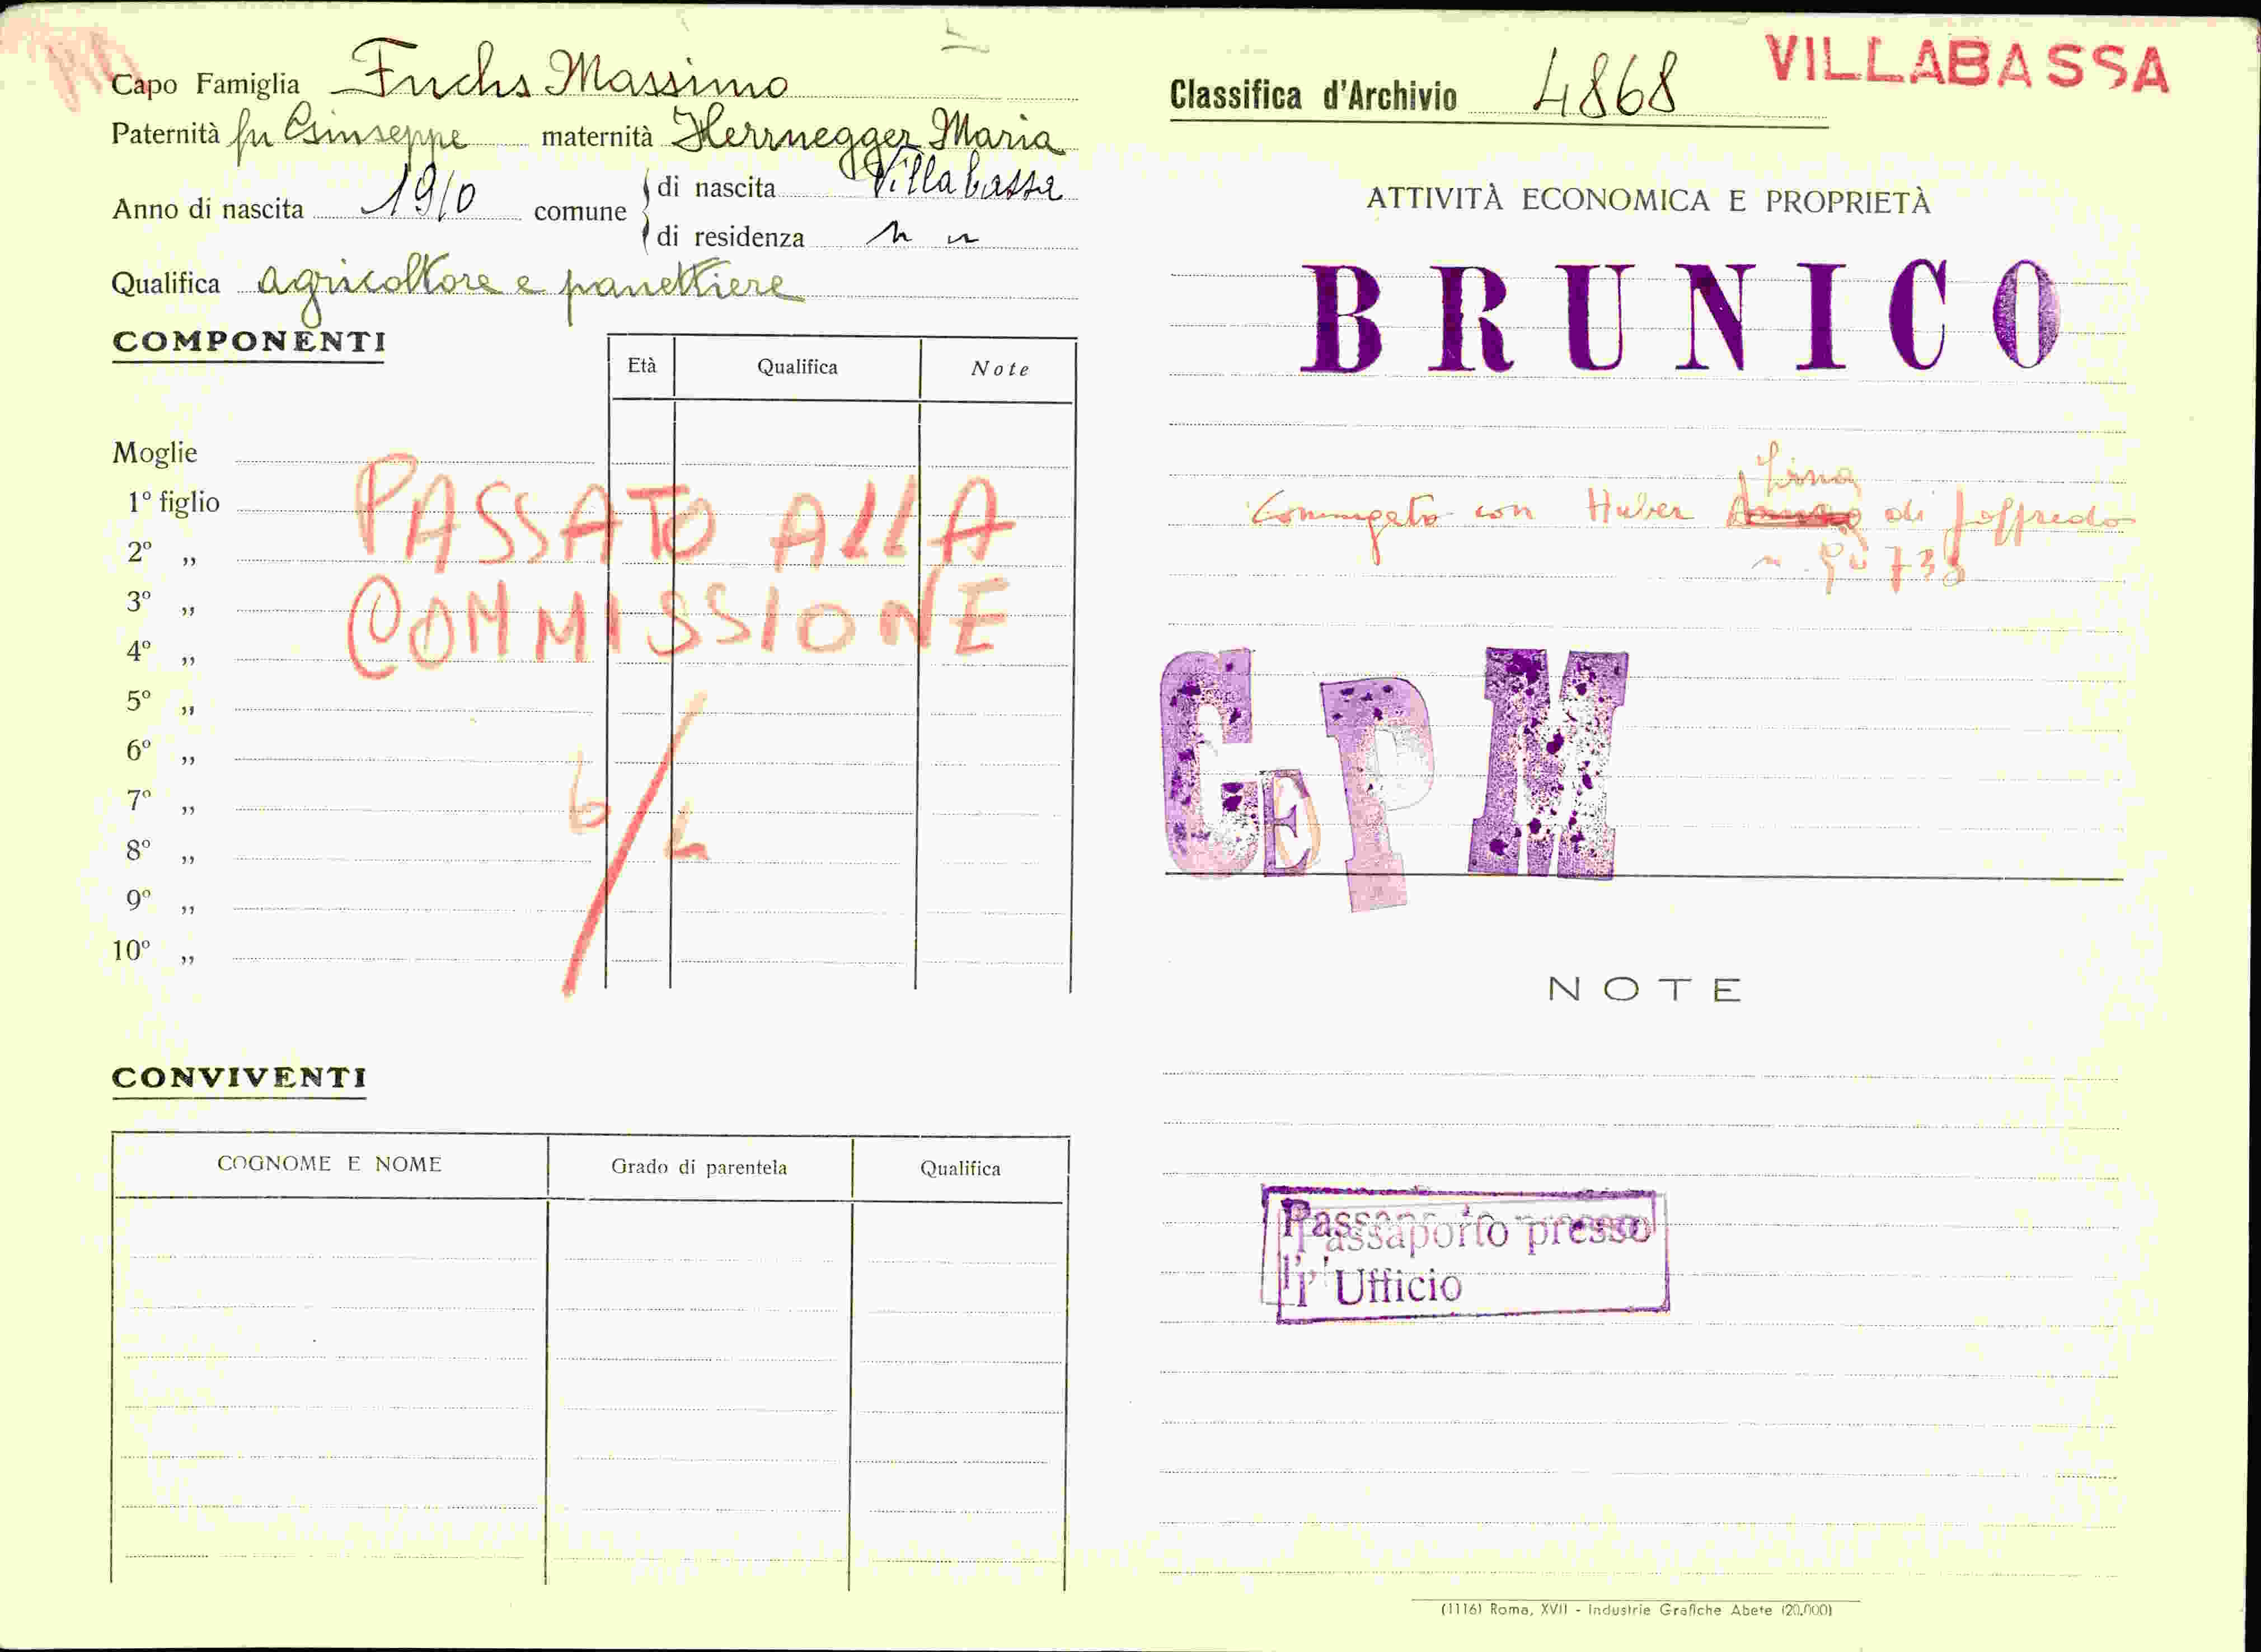 Capo Famiglia Fuchs Massimo
Paternità fu Giuseppe maternità Herrnegger Maria
Anno di nascita 1910 comune di nascita Villabassa
di residenza " "
Qualifica agricoltore e panettiere
COMPONENTI
Età Qualifica Note
Moglie
1º figlio
2º ,,
3º ,,
4º ,,
5º ,,
6º ,,
7º ,,
8º ,,
9º ,,
10º ,,
PASSATO ALLA
COMMISSIONE
CONVIVENTI
COGNOME E NOME Grado di parentela Qualifica
VILLABASSA
Classifica d'Archivio 4868
ATTIVITÀ ECONOMICA E PROPRIETÀ
BRUNICO
Coniugato con Huber di Joffredo
GE P M
NOTE
Passaporto presso
l'Ufficio
(1116) Roma, XVII - Industrie Grafiche Abete (20.000)